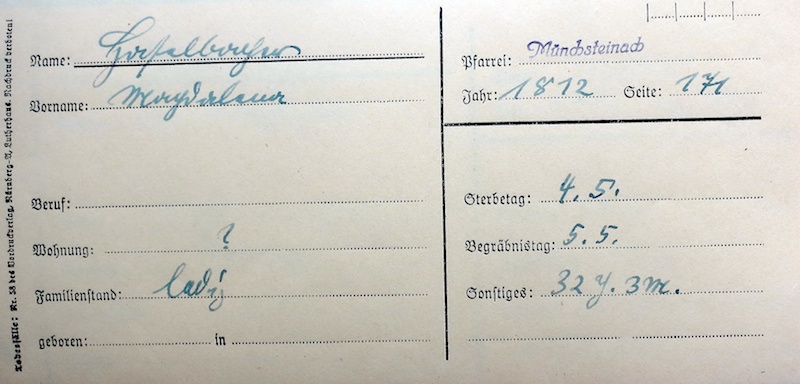 Todesfälle: Nr. 58 des Vordruckverlag, Nürnberg-A, Lutherhaus. Nachdruck verboten!
Name: Haselbacher
Vorname: Magdalena
Beruf:
Wohnung: ?
Familienstand: ledig
geboren: in
Pfarrei: Münchsteinach
Jahr: 1812 Seite: 171
Sterbetag: 4. 5.
Begräbnistag: 5. 5.
Sonstiges: 32 J. 3 M.